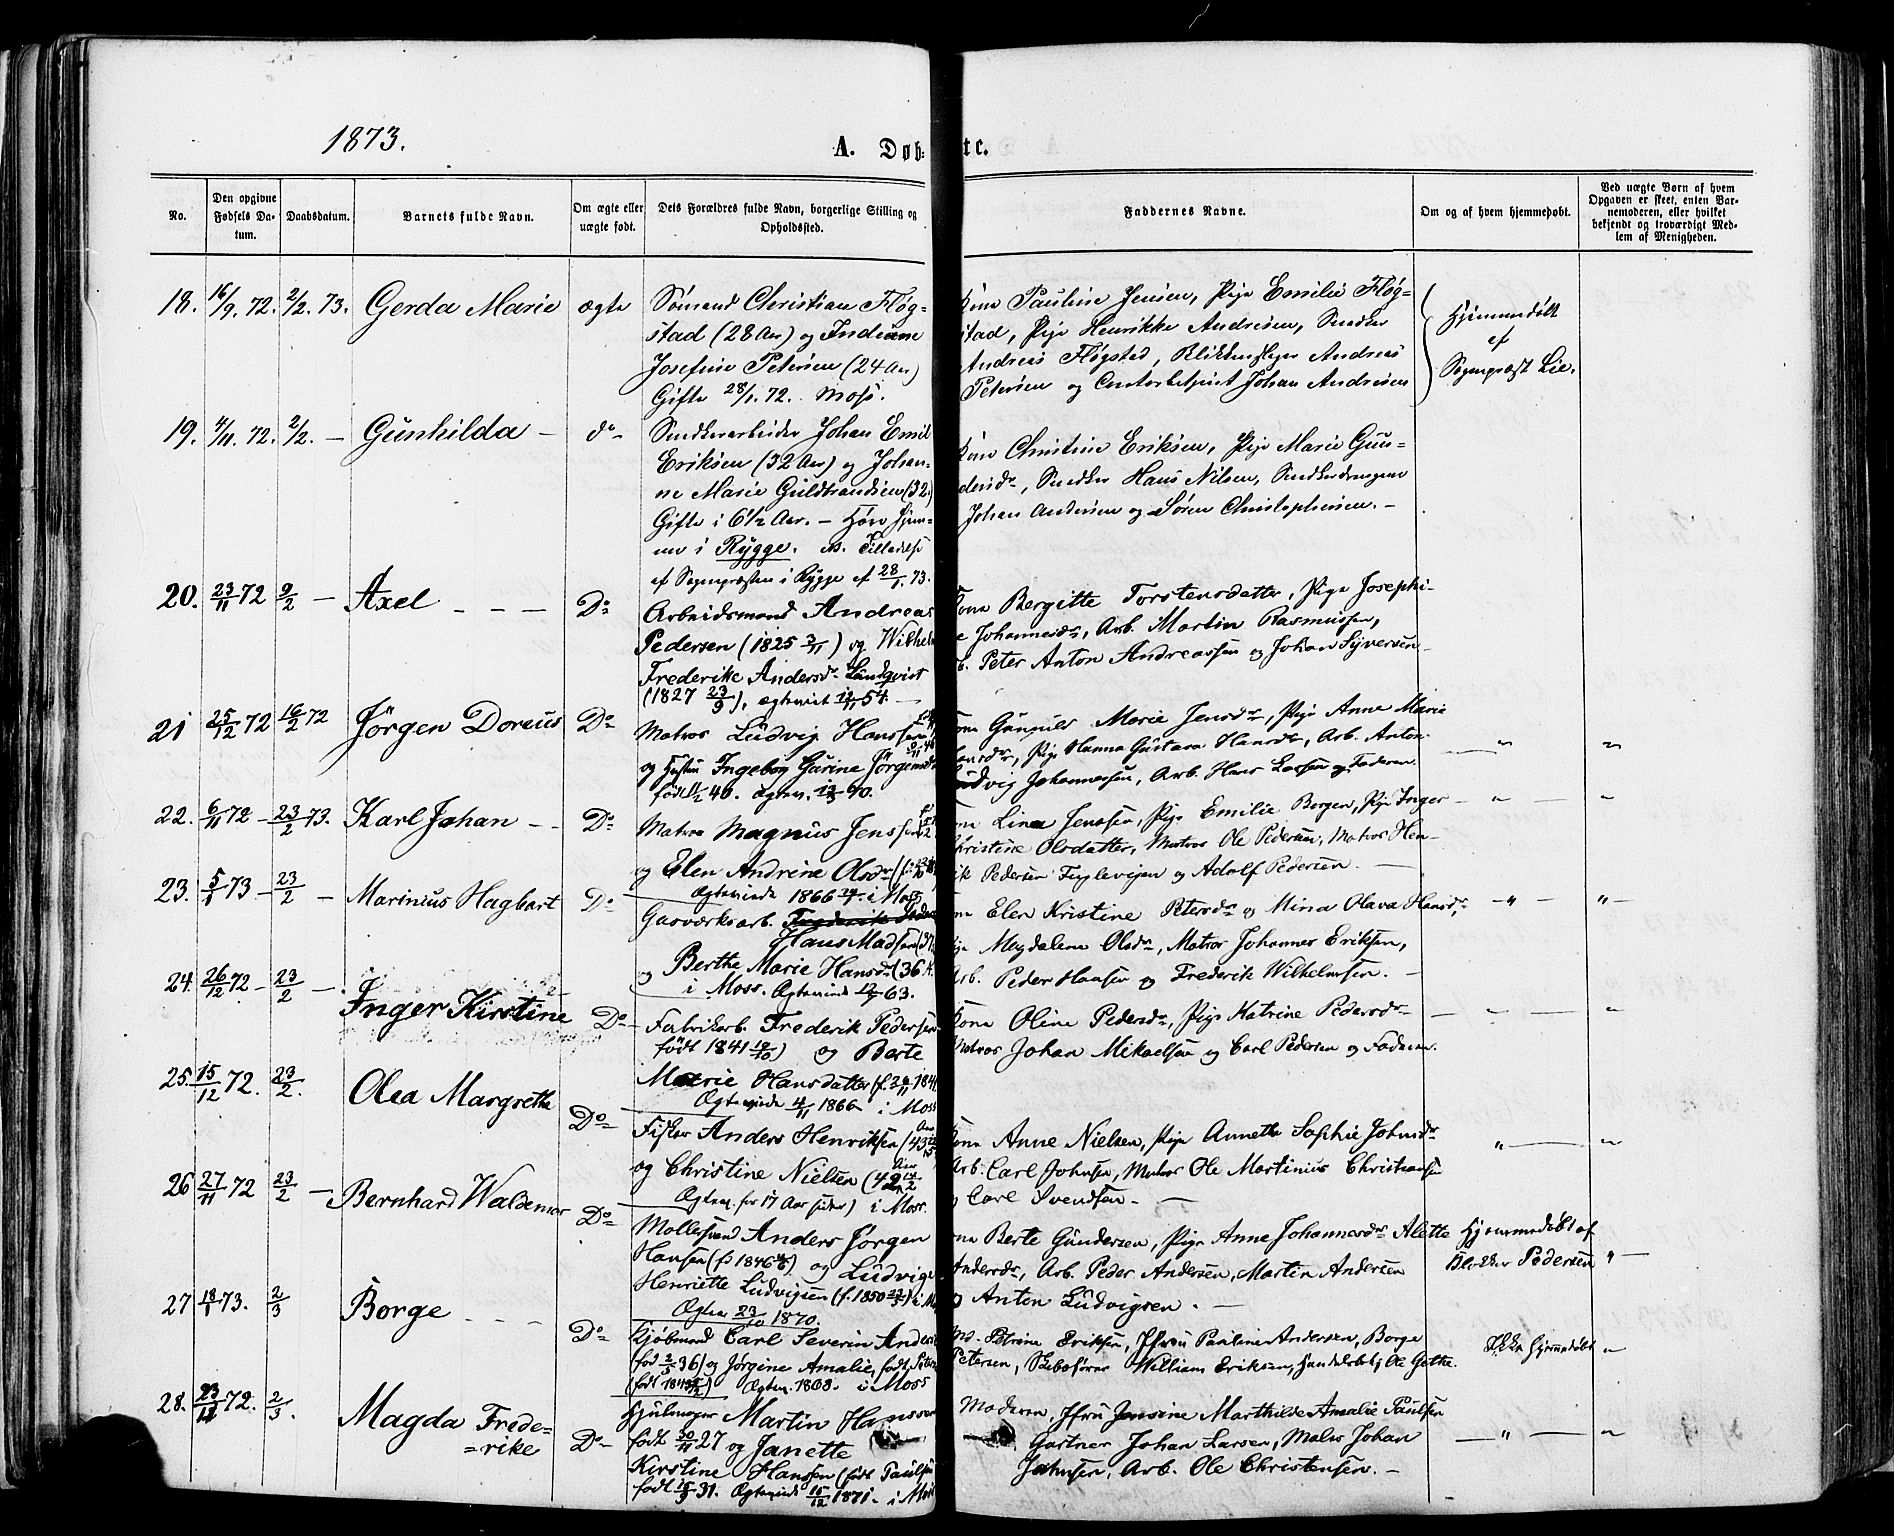 1873.
A. Døb-
te.
No.
Den opgivne Fødsels Da-
tum.
Daabsdatum.
Barnets fulde Navn.
Om ægte eller
uægte født.
Dets Forældres fulde Navn, borgerlige Stilling og
Opholdssted.
Faddernes Navne.
Om og af hvem hjemmedøbt.
Ved uægte Børn af hvem
Opgaven er skeet, enten Bar-
nemoderen, eller hvilket
bekjendt og troværdigt Med-
lem af Menigheden.
18. 16/9. 72. 2/2. 73. Gerda Marie ægte
Sömand Christian Fløg-
stad (28 Aar) og Indiane
Josefine Petersen (24 Aar)
Gifte 28/1. 72. Moss.
Kone Pauline Jensen, Pige Emilie Fløg-
stad, Pige Henrikke Andresen, Snedker
Andreas Fløgstad, Blikkenslager Andreas
Petersen og Contorbetjent Johan Andresen
Hjemmedøbt
af
Sognepræst Lie.
19. 4/11. 72. 2/2. — Gunhilda — do
Snedkerarbeider Johan Emil
Eriksen (32 Aar) og Johan-
ne Marie Guldbrandsen (32)
Gifte i 6 1/2 Aar. — Har Hjem-
me i Rygge. Tilladelse
af Sognepræsten i Rygge af 28/1. 73.
Kone Christine Eriksen, Pige Marie Gun-
dersdr, Snedker Hans Nilsen, Snedkerdrengene
Johan Andersen og Søren Christophersen. —
20. 23/11 72 9/2 — Axel — — — Do
Arbeidsmand Andreas
Pedersen (1825 3/11) og Wilhel
Frederikke Andersdr Landqvist
(1827 23/9), ægteviet 12/11 54. —
Kone Bergitte Torstensdatter, Pige Josephi-
ne Johannesdr, Arb. Martin Rasmussen,
b. Peter Anton Andreassen og Johan Syversen
21 25/12 72 16/2 72 Jørgen Doreus Do
Matros Ludvig Hanssen
og Hustru Ingeborg Gurine Jørgensdr
født 11/2 40. Ægtev.
Kone Gunnild Marie Jensdr, Pige Anne Marie
Hansdr, Pige Hanna Gustava Hansdr, Arb. Anton
Ludvig Johannessen, Arb. Hans Larsen og Faderen
— „ „
22. 6/11 72 — 23/2 73. Karl Johan — Do
Matros Magnus Jenssen
og Elen Andrine Olsdr
Ægteviede 1866 i Moss
Kone Lina Jenssen, Pige Emilie Borgen, Pige Inger
Christine Olsdatter, Matros Ole Pedersen, Matros Hen-
rik Pedersen Fuglevigen og Adolf Pedersen. —
— „ — „
23. 5/1 73 — 23/2 — Marinius Hagbart Do
Gasværksarb.
Hans Madsen (37
og Berthe Marie Hansdr (36 A.
i Moss. Ægteviede 63.
Kone Elen Kristine Petersdr og Mina Olava Hansdr,
Pige Magdalena Olsdr, Matros Johannes Eriksen,
Arb. Peder Hansen og Frederik Wilhelmsen. —
— „ — „ —
24. 26/12 72 — 23/2 — Inger Kirstine Do —
Fabrikarb. Frederik Pedersen
født 1841 19/10) og Berte
Marie Hansdatter (f. 1841
Ægteviede 4/11 1866 i Moss
Kone Oline Pedersdr, Pige Katrine Pedersdr
Matros Johan Mikaelsen og Carl Pedersen og Faderen.
— „ — „
25. 15/12 72. 23/2. Olea Margrethe Do
Fisker Anders Henriksen (43
og Christine Nielsen (42
Ægtev. for 17 Aar siden) i Moss.
Kone Anne Nielsen, Pige Annette Sophie Johnsdr
Arb. Carl Johnsen, Matros Ole Martinius Christiansen
og Carl Svendsen. —
„ — „
26 27/11 72 23/2 — Bernhard Waldemar Do
Møllesvend Anders Jørgen
Hansen (f. 1846 ) og Ludvige
Henriette Ludvigsen (f. 1850 ) i M
Ægtev 23/10 1870.
Kone Berte Gundersen, Pige Anne Johannesdr Alette
Andersdr, Arb. Peder Andersen, Martin Andersen
og Anton Ludvigsen. —
Hjemmedøbt af
Klokker Pedersen
„ —
27 18/1 73. 2/3 Borge — — — Do
Kjøbmand Carl Severin Anders
(fød 36) og Jørgine Amalie, født Peters
(født 1843 ) Ægtev. 1868. i Moss
Petrine Eriksen, Jfru Pauline Andersen, Borge
Petersen, Skibsfører William Eriksen, Handelsbetj. Ole Gothe.
Ikke hjemmedøbt „
28. 23/12 72. 2/3. Magda Frede-
=rike Do
Hjulmager Martin Hanssen
født 30/11 27 og Janette
Kirstine Hanssen (født Paulsen
født 31. Ægteviede 15/12 1871. i Moss
Moderen, Jfru Jensine Marthilde Amalie Paulsen
Gartner Johan Larsen, Maler Johan
Johnsen, Arb. Ole Christensen. —
— „ — „